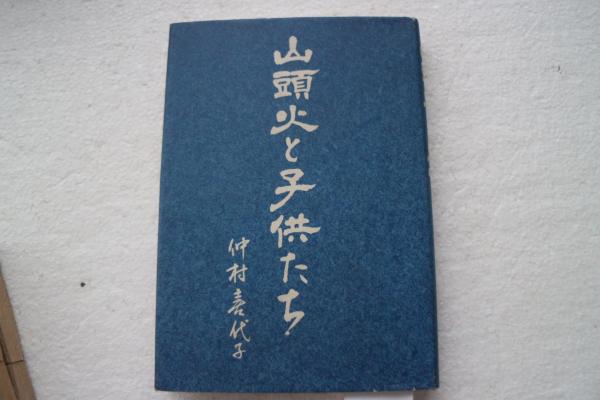 山頭火と子供たち
仲村喜代子